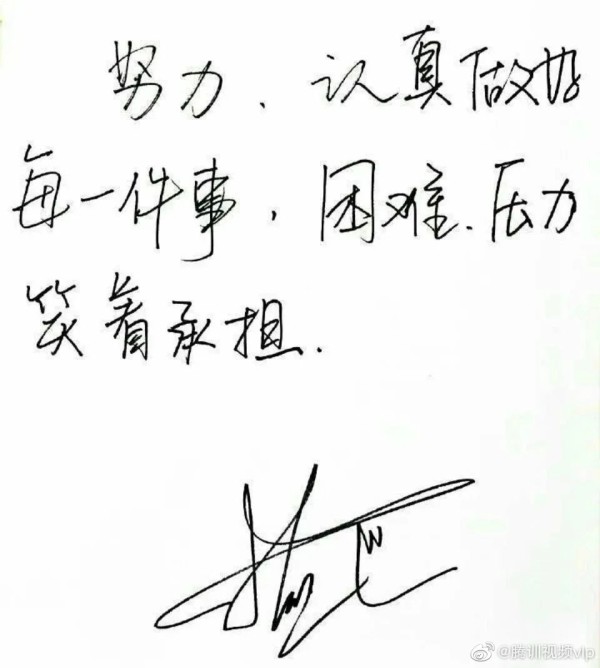 努力、认真做好
每一件事，困难、压力
笑着承担.
@腾圳视频vip